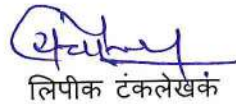 लिपीक टंकलेखक